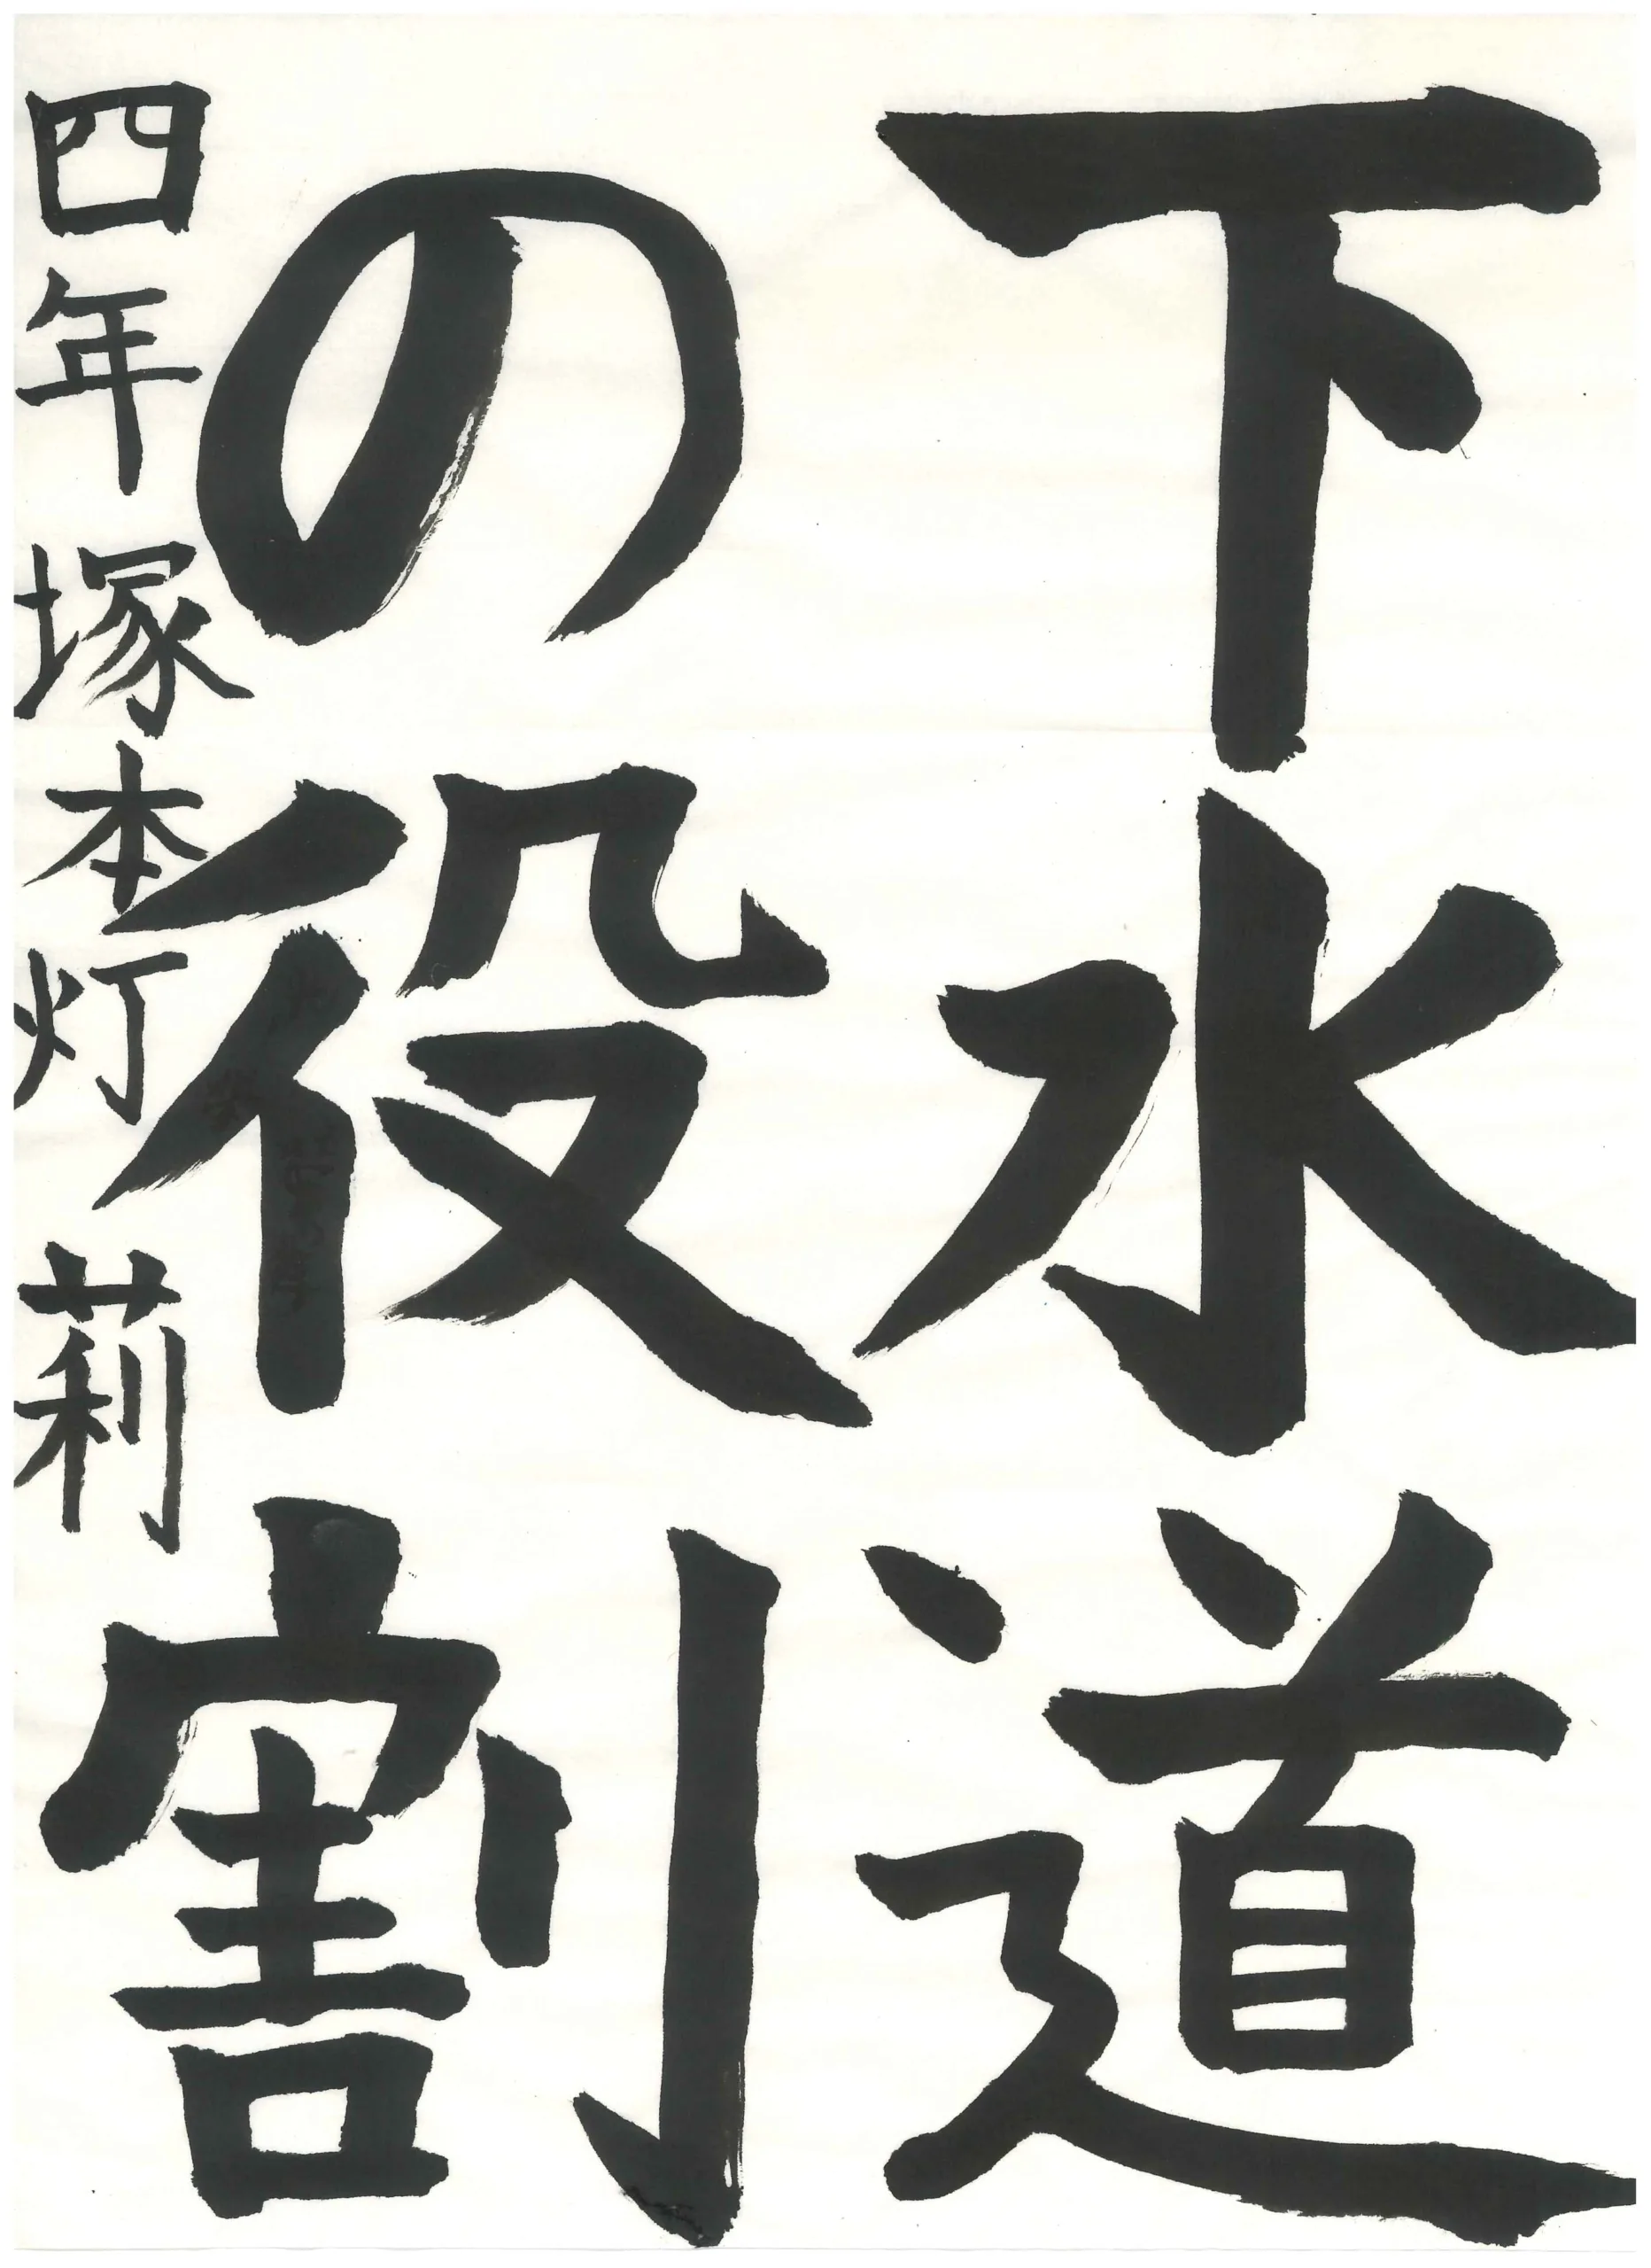 下水道
の役割
四年 塚本灯莉